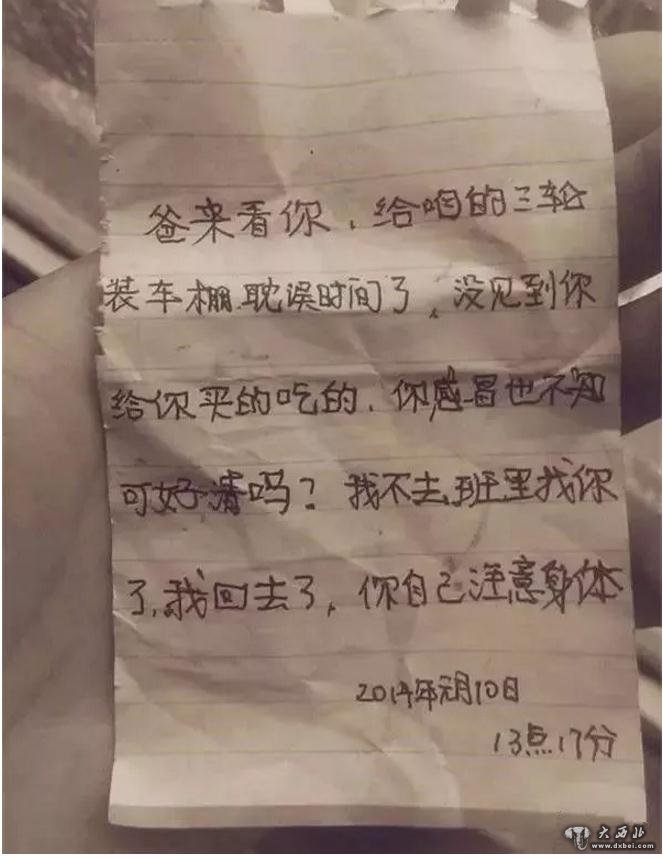 爸来看你，给咱的三轮
装车棚耽误时间了，没见到你
给你买的吃的，你感冒也不知
可好清吗？我不去班里找你
了，我回去了，你自己注意身体
2014年元月10日
13点17分
大西北
www.dxbei.com